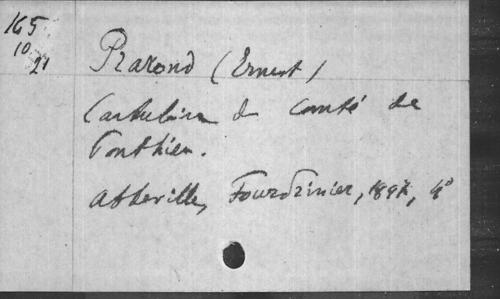 165
10
21
Prarond (Ernest)
Cartulaire du Comté de
Ponthieu.
Abbeville, Fourdrinier, 1897, 4°